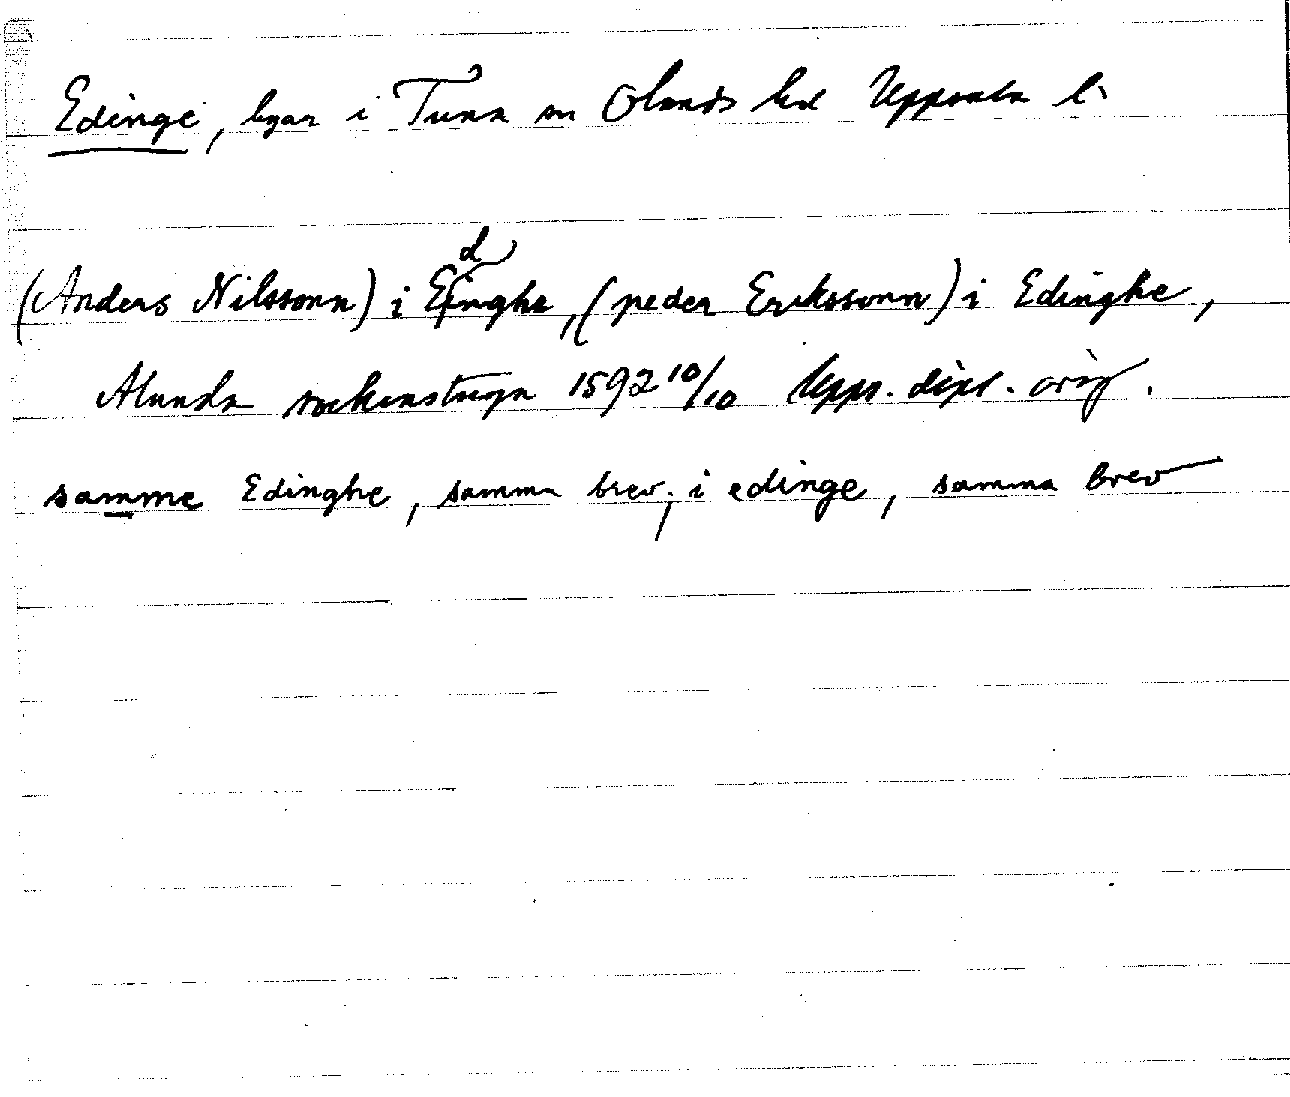 Edinge, byar i Tuna sn Olands hd Uppsala l.
(Anders Nilssonn) i Edinghe, (peder Erikssonn) i Edinghe,
Alunda sockenstuga 1592 10/10 Upps. dipl. orig.
samme Edinghe, samma brev; i edinge, samma brev